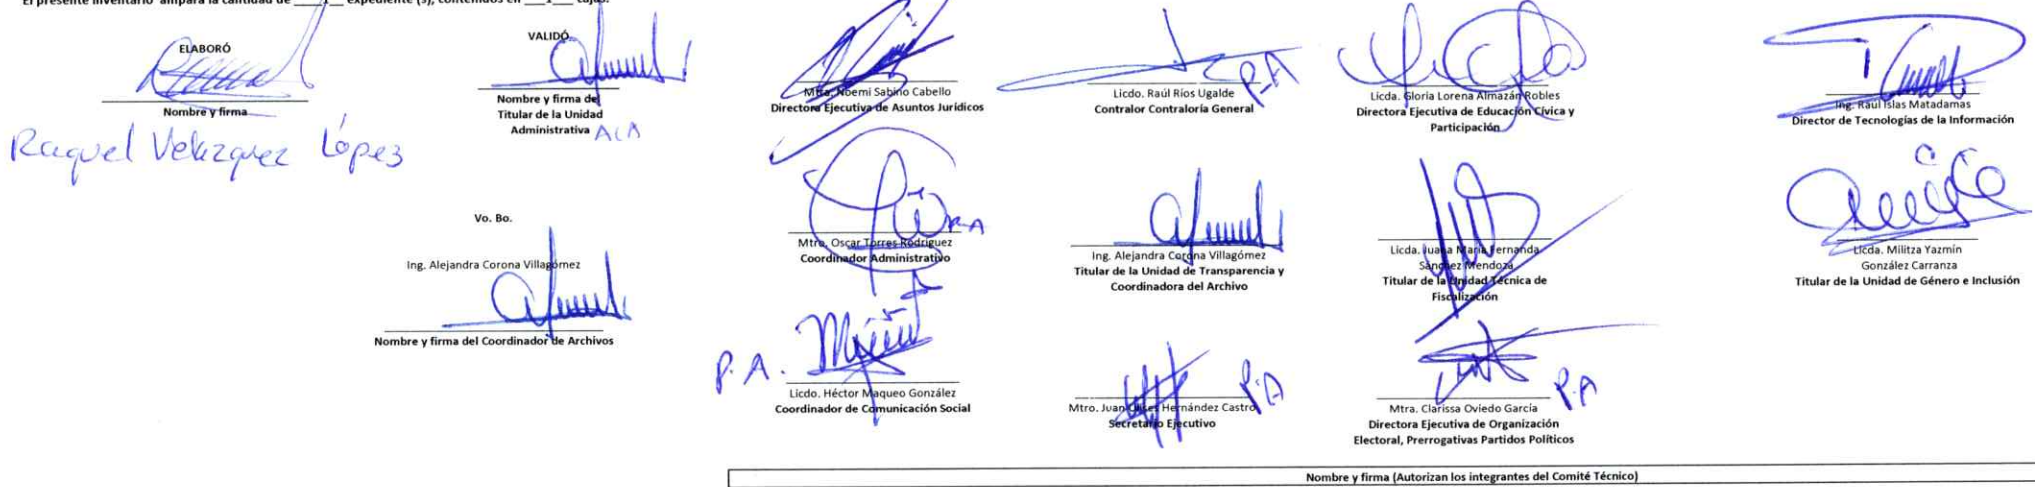 El presente inventario ampara la cantidad de ____1__ expediente (s), contenidos en ___1___ cajas.
ELABORÓ
Nombre y firma
Raquel Velazquez López
VALIDÓ
Nombre y firma del
Titular de la Unidad
Administrativa ACA
Vo. Bo.
Ing. Alejandra Corona Villagómez
Nombre y firma del Coordinador de Archivos
Mtra. Noemi Sabino Cabello
Directora Ejecutiva de Asuntos Jurídicos
Licdo. Raúl Ríos Ugalde
Contralor Contraloría General
P.A
Licda. Gloria Lorena Almazán Robles
Directora Ejecutiva de Educación Cívica y
Participación
Ing. Raúl Islas Matadamas
Director de Tecnologías de la Información
Mtro. Oscar Torres Rodríguez
Coordinador Administrativo
P.A
Ing. Alejandra Corona Villagómez
Titular de la Unidad de Transparencia y
Coordinadora del Archivo
Licda. Juana María Fernanda
Sánchez Mendoza
Titular de la Unidad Técnica de
Fiscalización
Licda. Militza Yazmín
González Carranza
Titular de la Unidad de Género e Inclusión
P.A.
Licdo. Héctor Maqueo González
Coordinador de Comunicación Social
Mtro. Juan Ulises Hernández Castro
Secretario Ejecutivo
P.A
Mtra. Clarissa Oviedo García
Directora Ejecutiva de Organización
Electoral, Prerrogativas Partidos Políticos
P.A
Nombre y firma (Autorizan los integrantes del Comité Técnico)